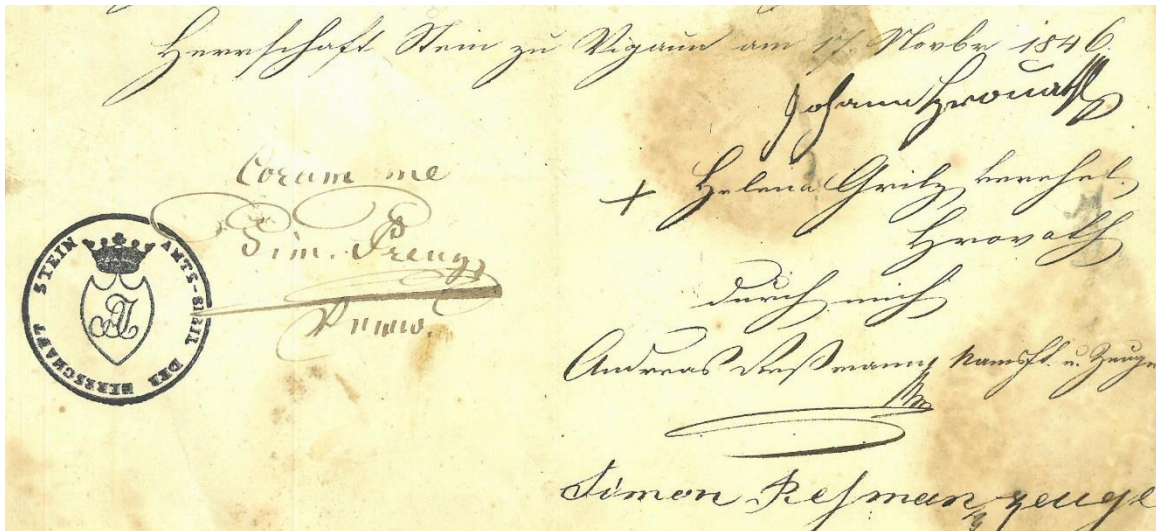 Herrschaft Stein zu Vigaun am 17. Novbr 1846.
Johann Hrouath
+ Helena Gritz verehel.
Hrovath
durch mich
Andreas Reßmann Namsft. u. Zeuge
Simon Resman zeuge
Coram me
Sim.
STEIN AMTS-SIGIL DER HERRSCHAFT